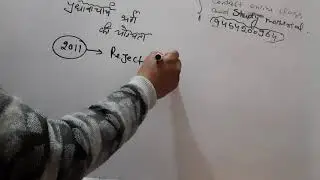 प्रधानाचार्य भर्ती
की योग्यता
2011 → Reject
contact online class
and Study material
9454200964